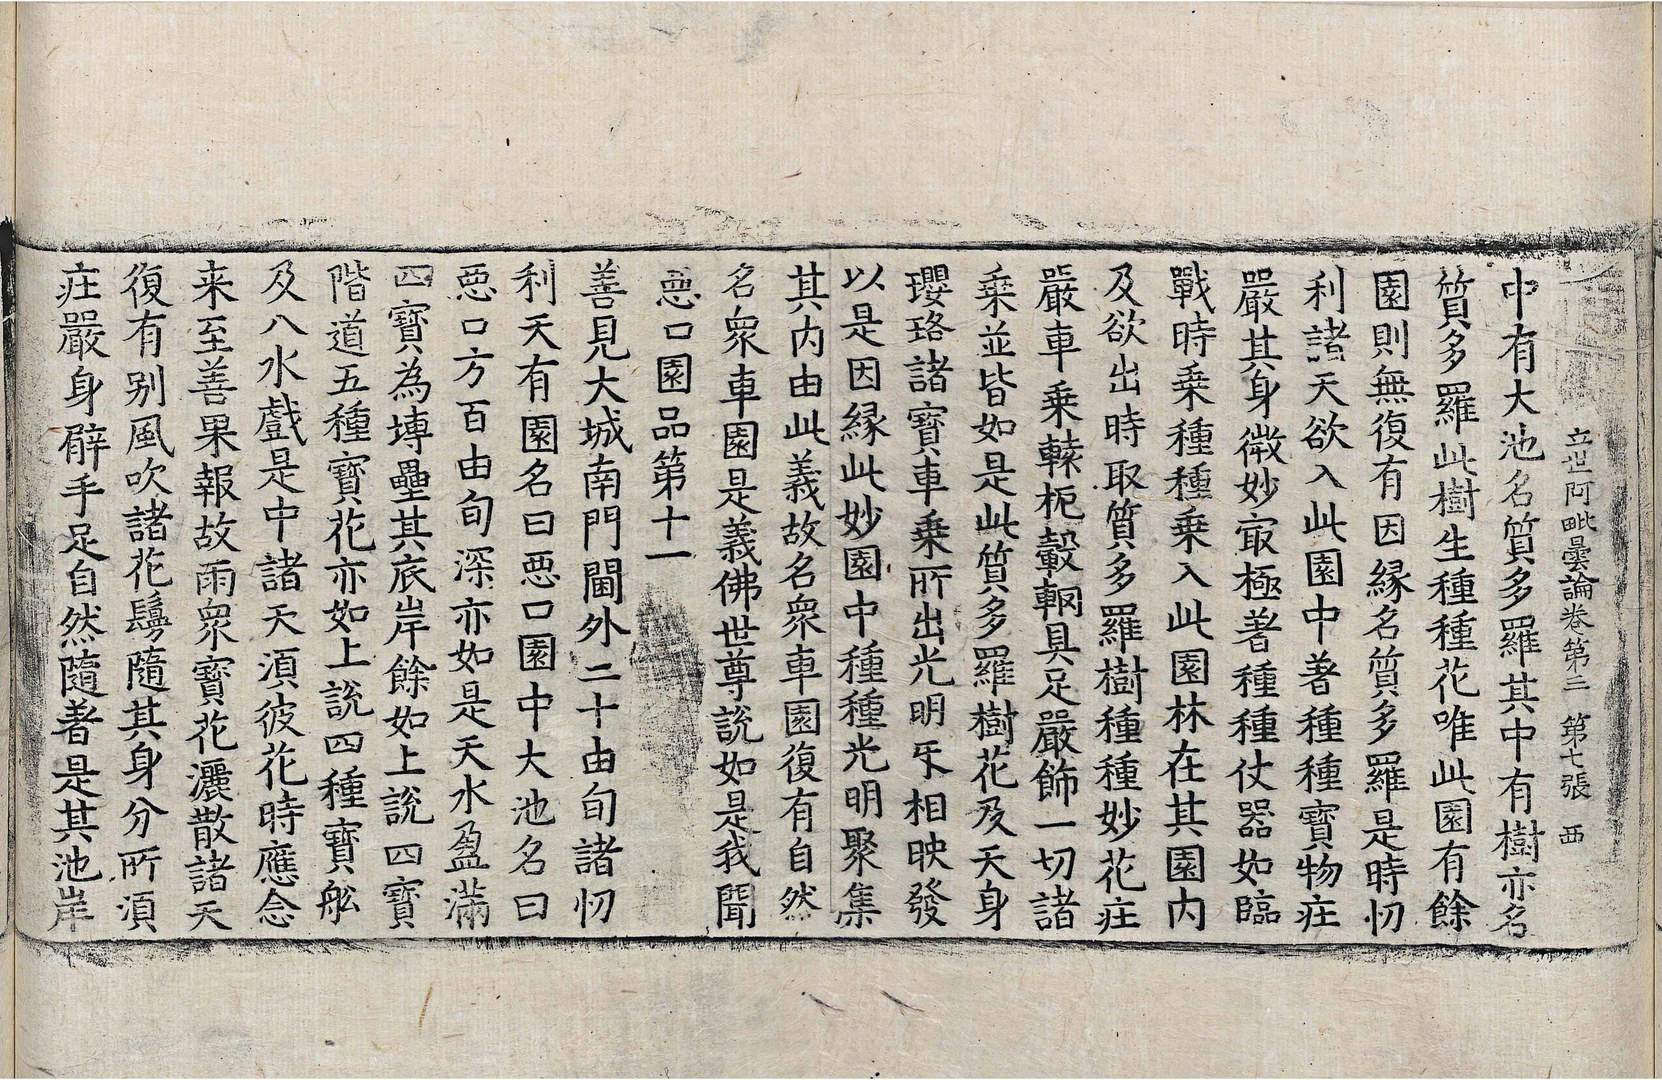 立世阿毗曇論卷第三　第七張　西
中有大池名質多羅其中有樹亦名
質多羅此樹生種種花唯此園有餘
園則無復有因縁名質多羅是時忉
利諸天欲入此園中著種種寶物庄
嚴其身微妙㝡極著種種仗器如臨
戰時乗種種乗入此園林在其園内
及欲出時取質多羅樹種種妙花庄
嚴車乗轅枙轂輞具足嚴飾一切諸
乗並皆如是此質多羅樹花及天身
瓔珞諸寶車乗所出光明㸦相映發
以是因縁此妙園中種種光明聚集
其内由此義故名衆車園復有自然
名衆車園是義佛世尊說如是我聞
惡口園品第十一
善見大城南門閫外二十由旬諸忉
利天有園名曰惡口園中大池名曰
惡口方百由旬深亦如是天水盈滿
四寶為塼壘其底岸餘如上說四寶
階道五種寶花亦如上說四種寶舩
及八水戲是中諸天湏彼花時應念
来至善果報故雨衆寶花灑散諸天
復有别風吹諸花鬘隨其身分所湏
庄嚴身臂手足自然隨著是其池岸